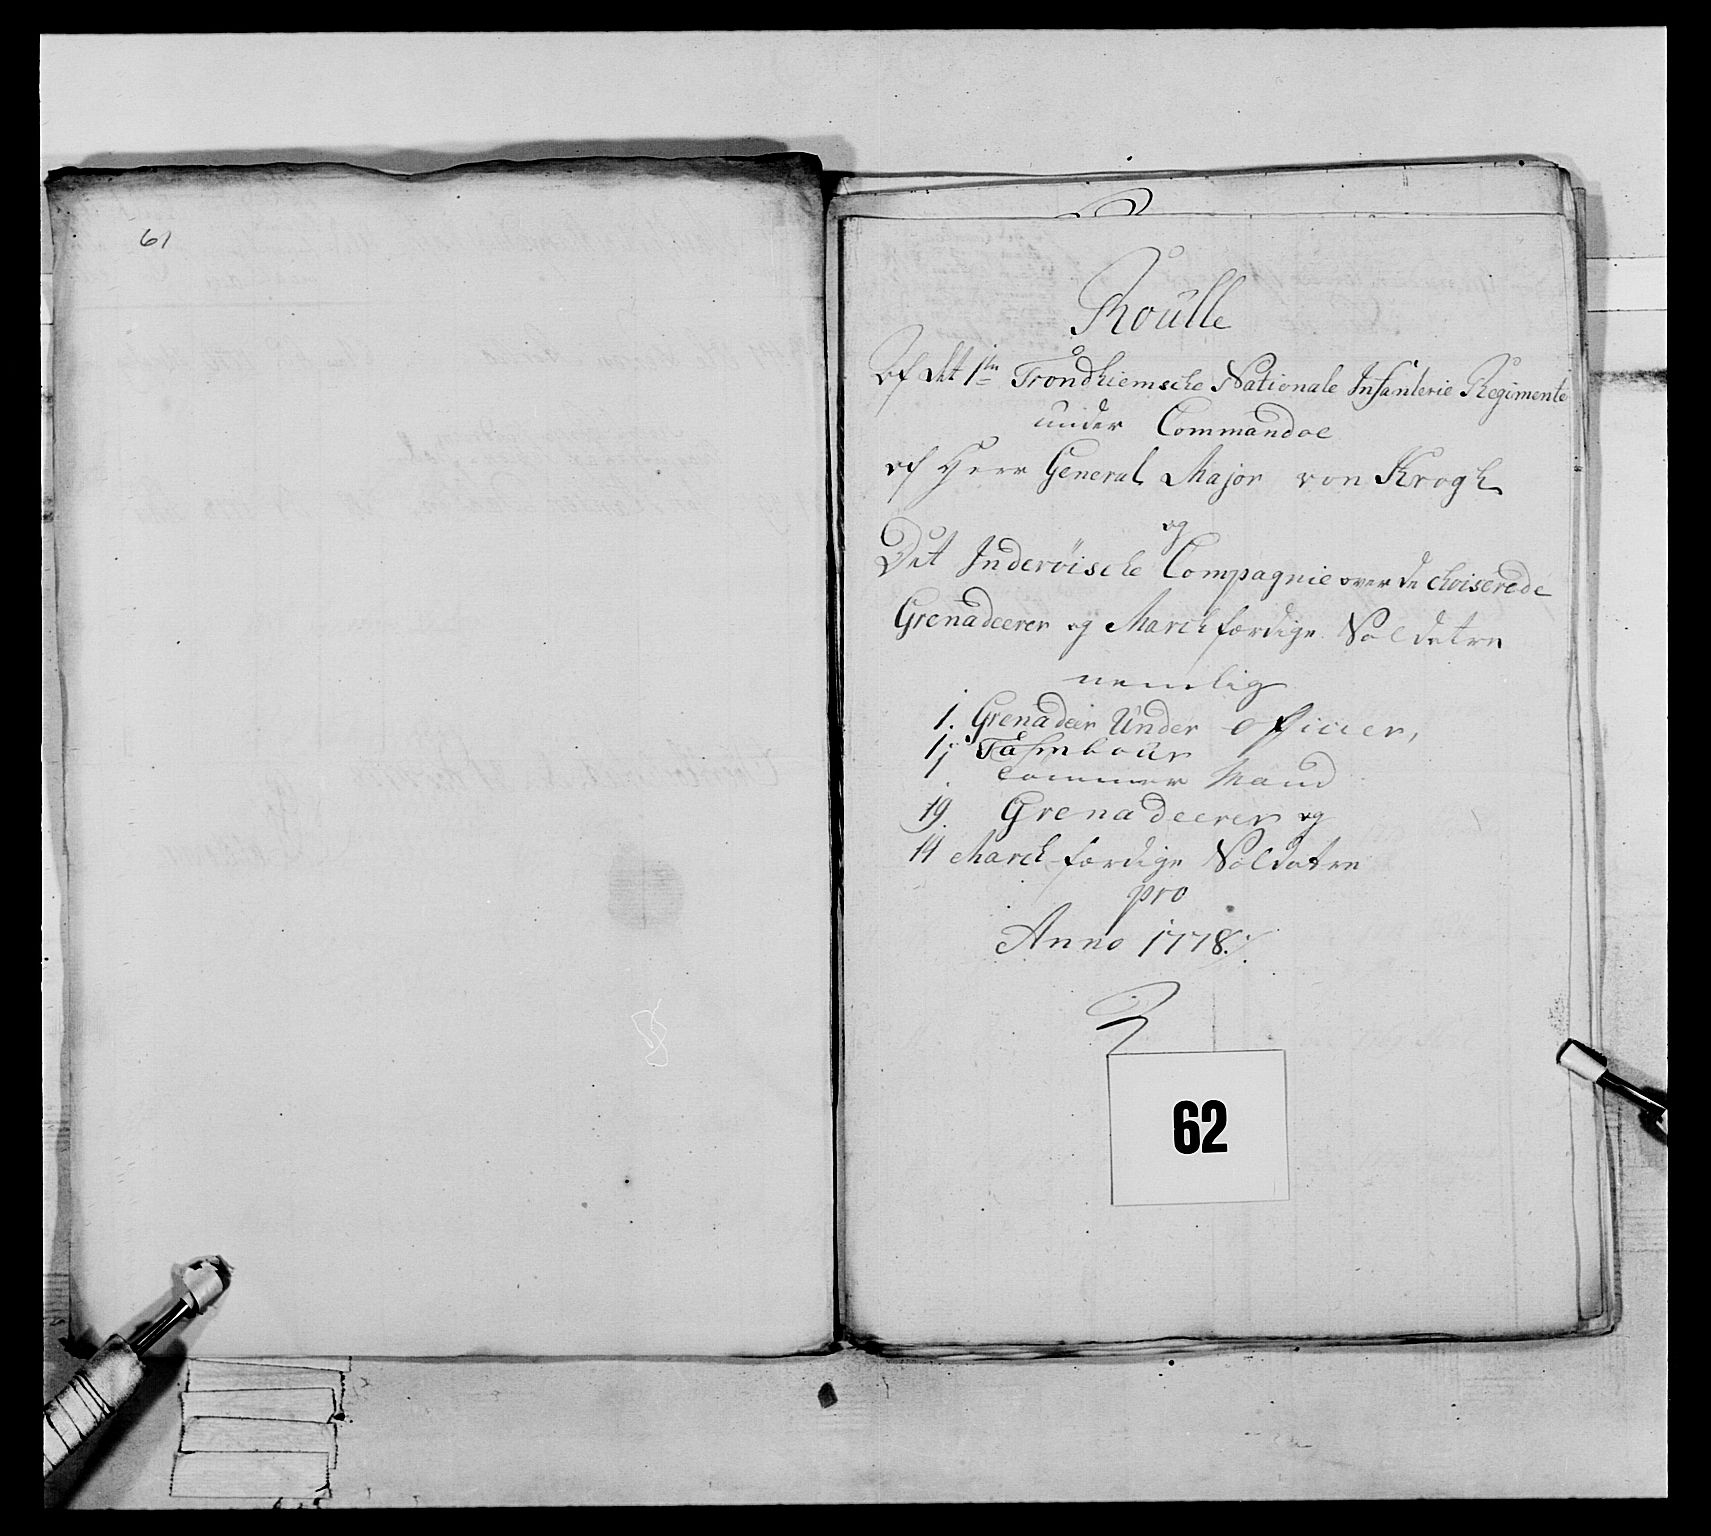 61
Roulle
Af det 1ste Trondhiemsche Nationale Infanterie Regimente
under Commandoe
af Herr General Major von Krogh
og
Det Inderöische Compagnie over de choiserede
Grenadeerer og March færdige Soldatere
nemlig
1. Grenadeer Under Officier,
1. Tambour
1. Tömmer Mand
19. Grenadeerer og
14 March-færdige Soldatere
pro
Anno 1778./.
62